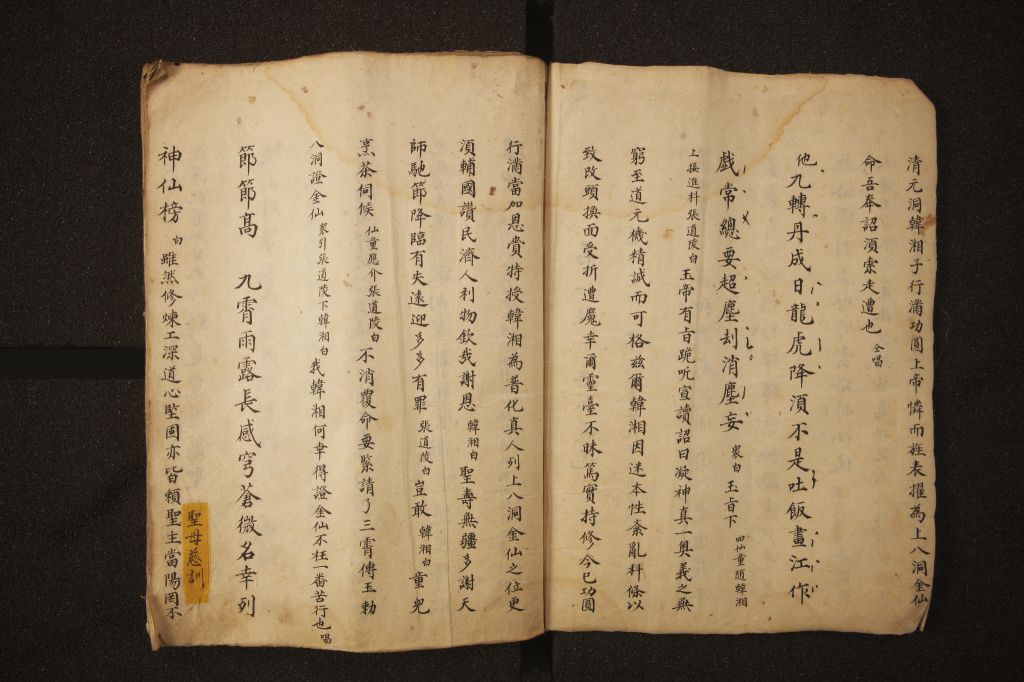 清元洞韓湘子行滿功圓上帝憐而旌表擢為上八洞金仙
命吾奉詔須索走遭也 仝唱
他九轉丹成日龍虎降須不是吐飯畫江作
戲常總要超塵刦消塵妄 衆白 玉旨下 四仙童隨韓湘
上接進科張道陵白 玉帝有旨跪听宣讀詔曰凝神真一奥義之無
窮至道元機精誠而可格茲爾韓湘因迷本性紊亂科條以
致改頭換面受折遭魔幸爾靈臺不昧篤實持修今已功圓
行滿當加恩賞特授韓湘為普化真人列上八洞金仙之位更
須輔國讚民濟人利物欽哉謝恩 韓湘白 聖壽無疆多謝天
師馳節降臨有失遠迎多多有罪 張道陵白 豈敢 韓湘白 童兒
烹茶伺候 仙童應介張道陵白 不消覆命要緊請了三霄傳玉勅
八洞證金仙 衆引張道陵下韓湘白 我韓湘何幸得證金仙不枉一番苦行也 唱
節節高 九霄雨露長感穹蒼微名幸列
神仙榜 白 雖然修煉工深道心堅固亦皆賴聖主當陽罔不
聖母慈訓